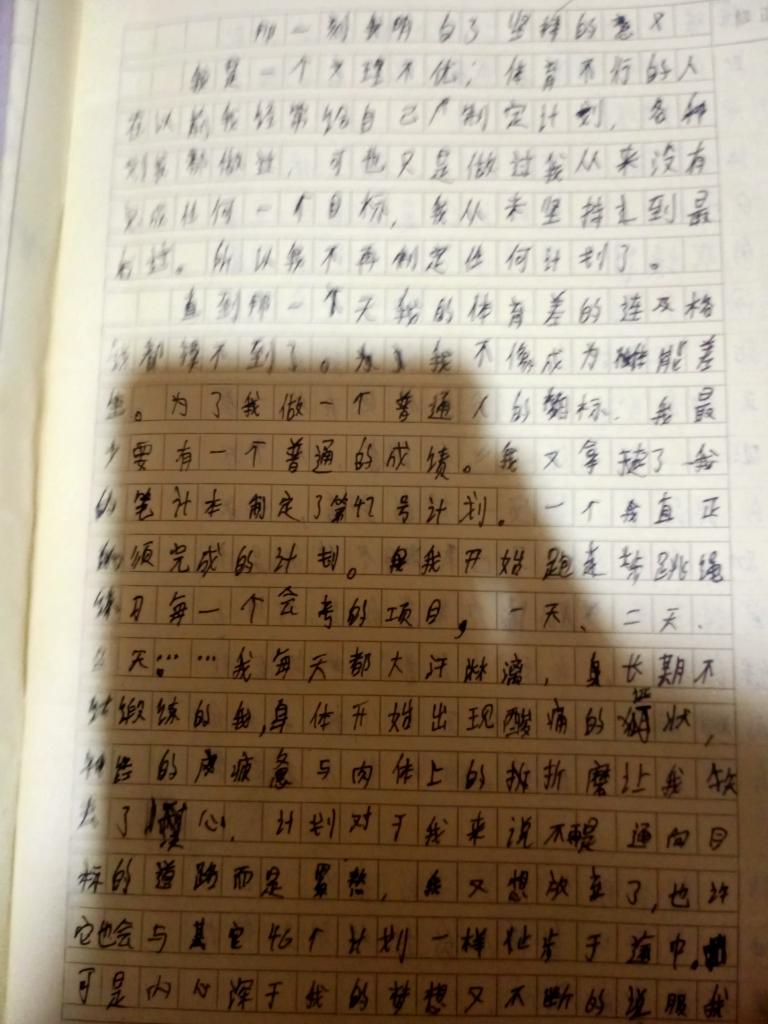 那一刻我明白了坚持的意义
我是一个文理不优,体育不行的人
在以前我经常给自己制定计划,各种
计划都做过,可也只是做过我从来没有
完成任何一个目标,我从未坚持走到最
后过。所以我不再制定任何计划了。
直到那一个天我的体育差的连及格
线都摸不到了。为了我不像成为能差
生。为了我做一个普通人的目标,我最
少要有一个普通的成绩。我又拿起了我
的笔计本制定了第47号计划。一个我真正
的须完成的计划。我开始跑走步跳绳
练习每一个会考的项目,一天、二天、
三天……我每天都大汗淋漓,身长期不
锻练的我,身体开始出现酸痛的症状,
的疲惫与肉体上的折磨让我
去了心,计划对于我来说不再是通向目
标的道路而是累赘,我又想放弃了,也许
它也会与其它46个计划一样止步于途中。
可是内心深于我的梦想又不断的说服我